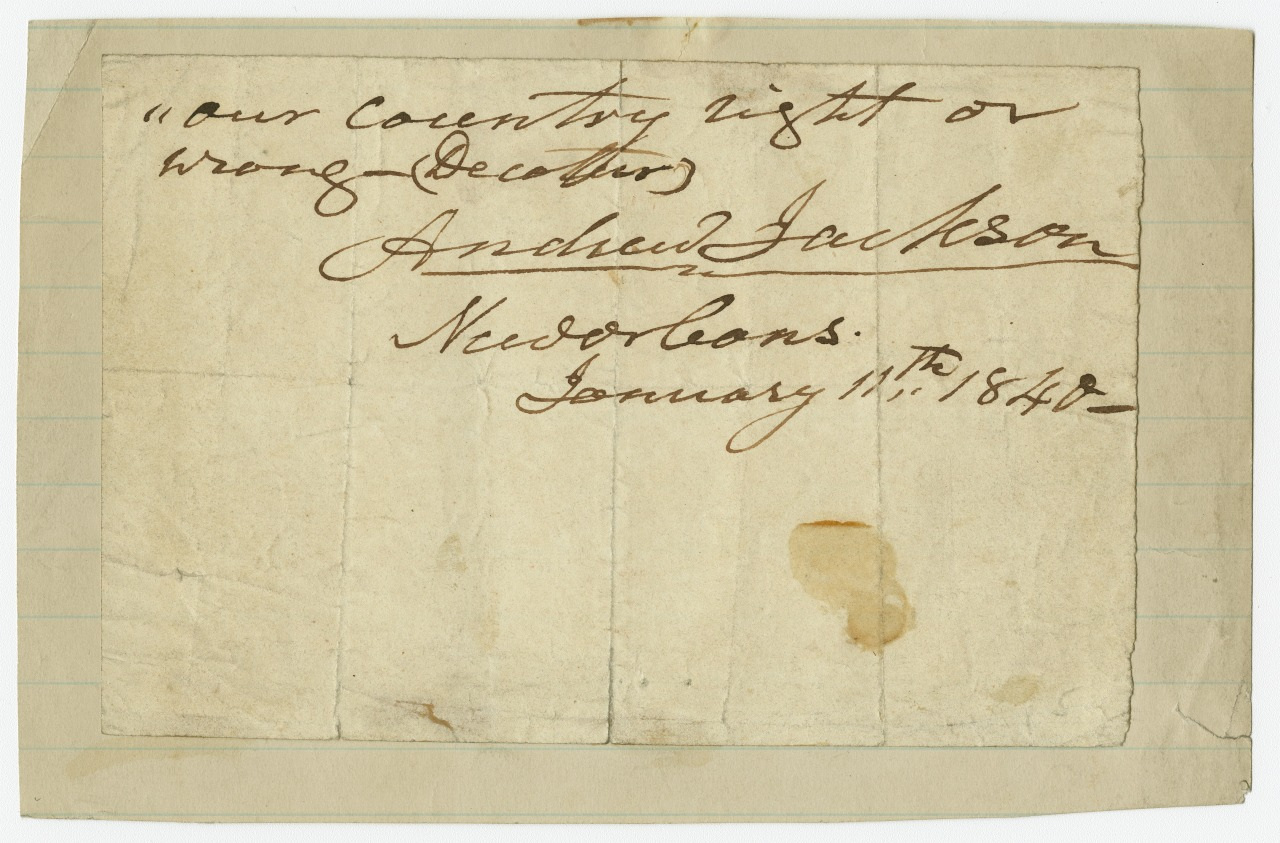 "our country right or
wrong—(Decatur)
Andrew Jackson
New orleans.
January 11th 1840—